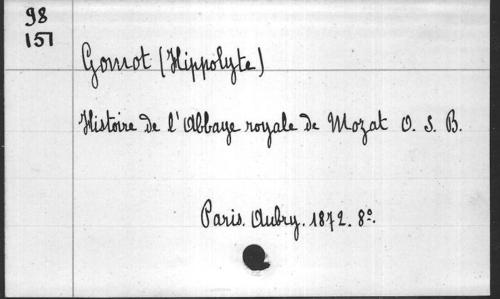 98
151
Gomot (Hippolyte)
Histoire de l'Abbaye royale de Mozat O. S. B.
Paris. Aubry. 1872. 8º.